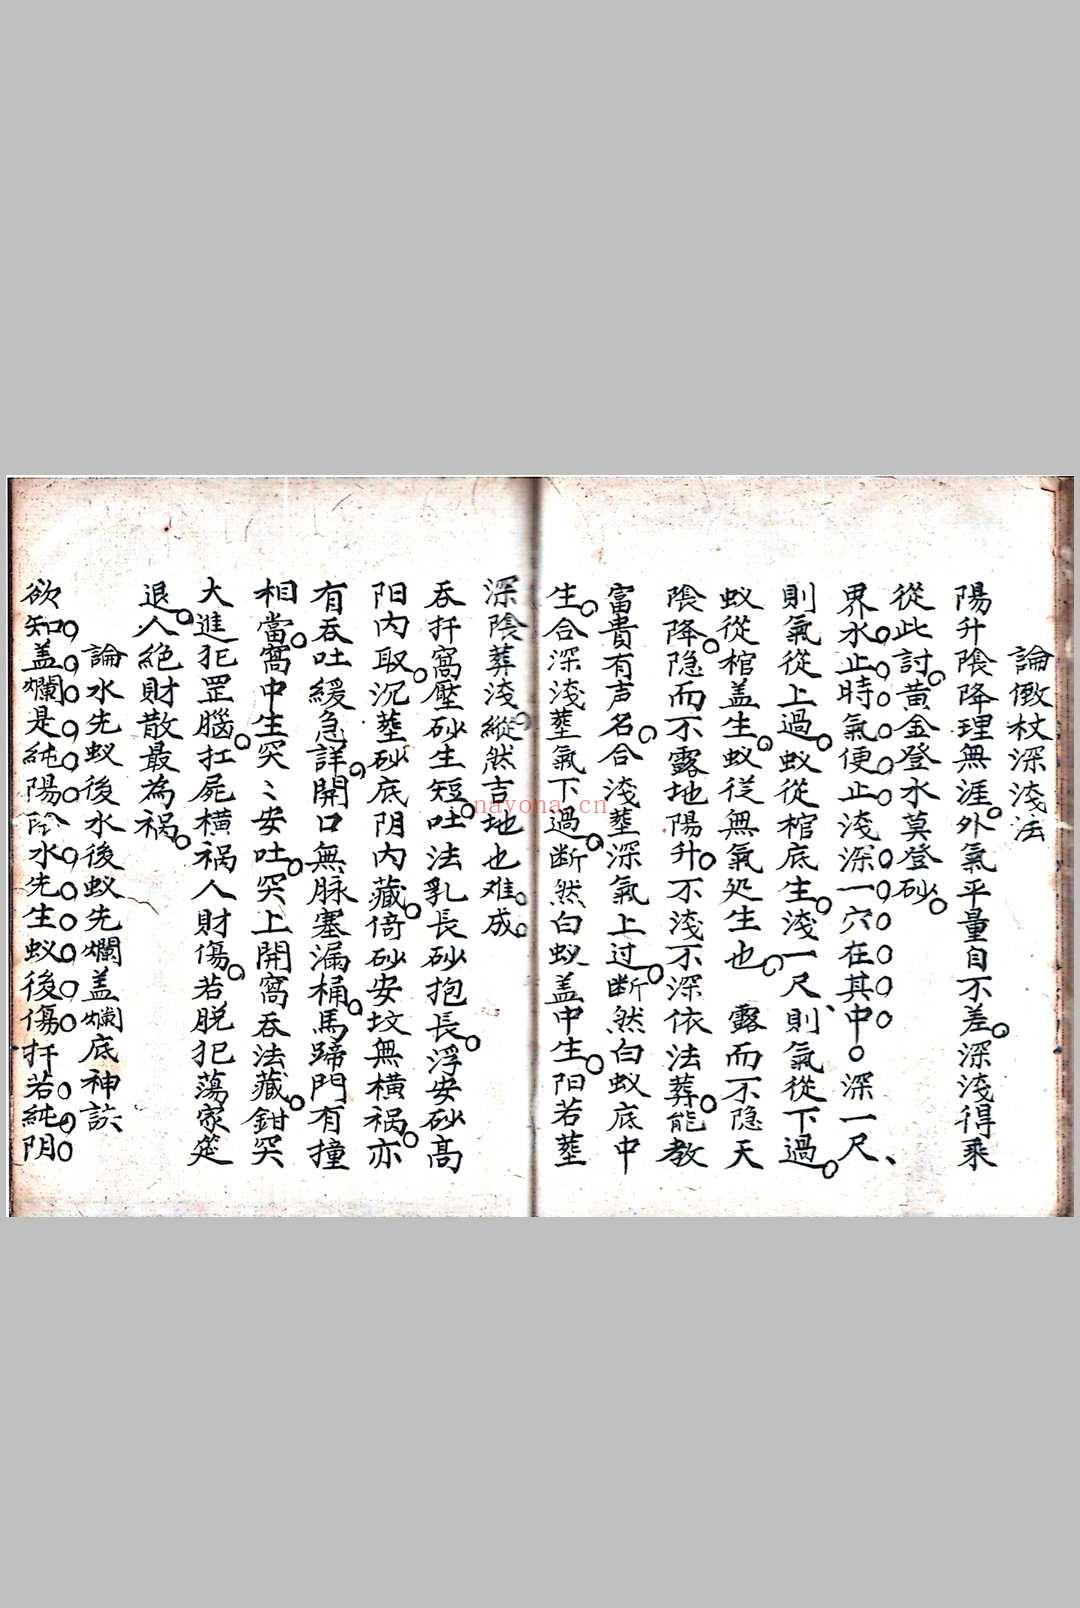 論倒杖深淺法
陽升陰降理無涯外氣平量自不差深淺得乘
從此討黃金登水莫登砂
界水止時氣便止淺深一穴在其中深一尺
則氣從上過蚁從棺底生淺一尺則氣從下過
蚁從棺盖生蚁從無氣処生也露而不隐天
陰降隐而不露地陽升不淺不深依法葬能教
富貴有声名合淺塟深氣上过断然白蚁底中
生合深淺塟氣下過断然白蚁盖中生阳若塟
深陰葬淺縱然吉地也难成
吞扦窩壓砂生短吐法乳長砂抱長浮安砂髙
阳内取沉塟砂底阴内藏倚砂安坟無横祸亦
有吞吐緩急詳開口無脉塞漏桶馬蹄門有撞
相當窩中生突〻安吐突上開窩吞法藏鉗突
大進犯罡腦扛屍横祸人財傷若脱犯蕩家筵
退人絶財散最為祸
論水先蚁後水後蚁先爛盖爛底神訣
欲知盖爛是純陽陰水先生蚁後傷扦若純阴
nayona.cn